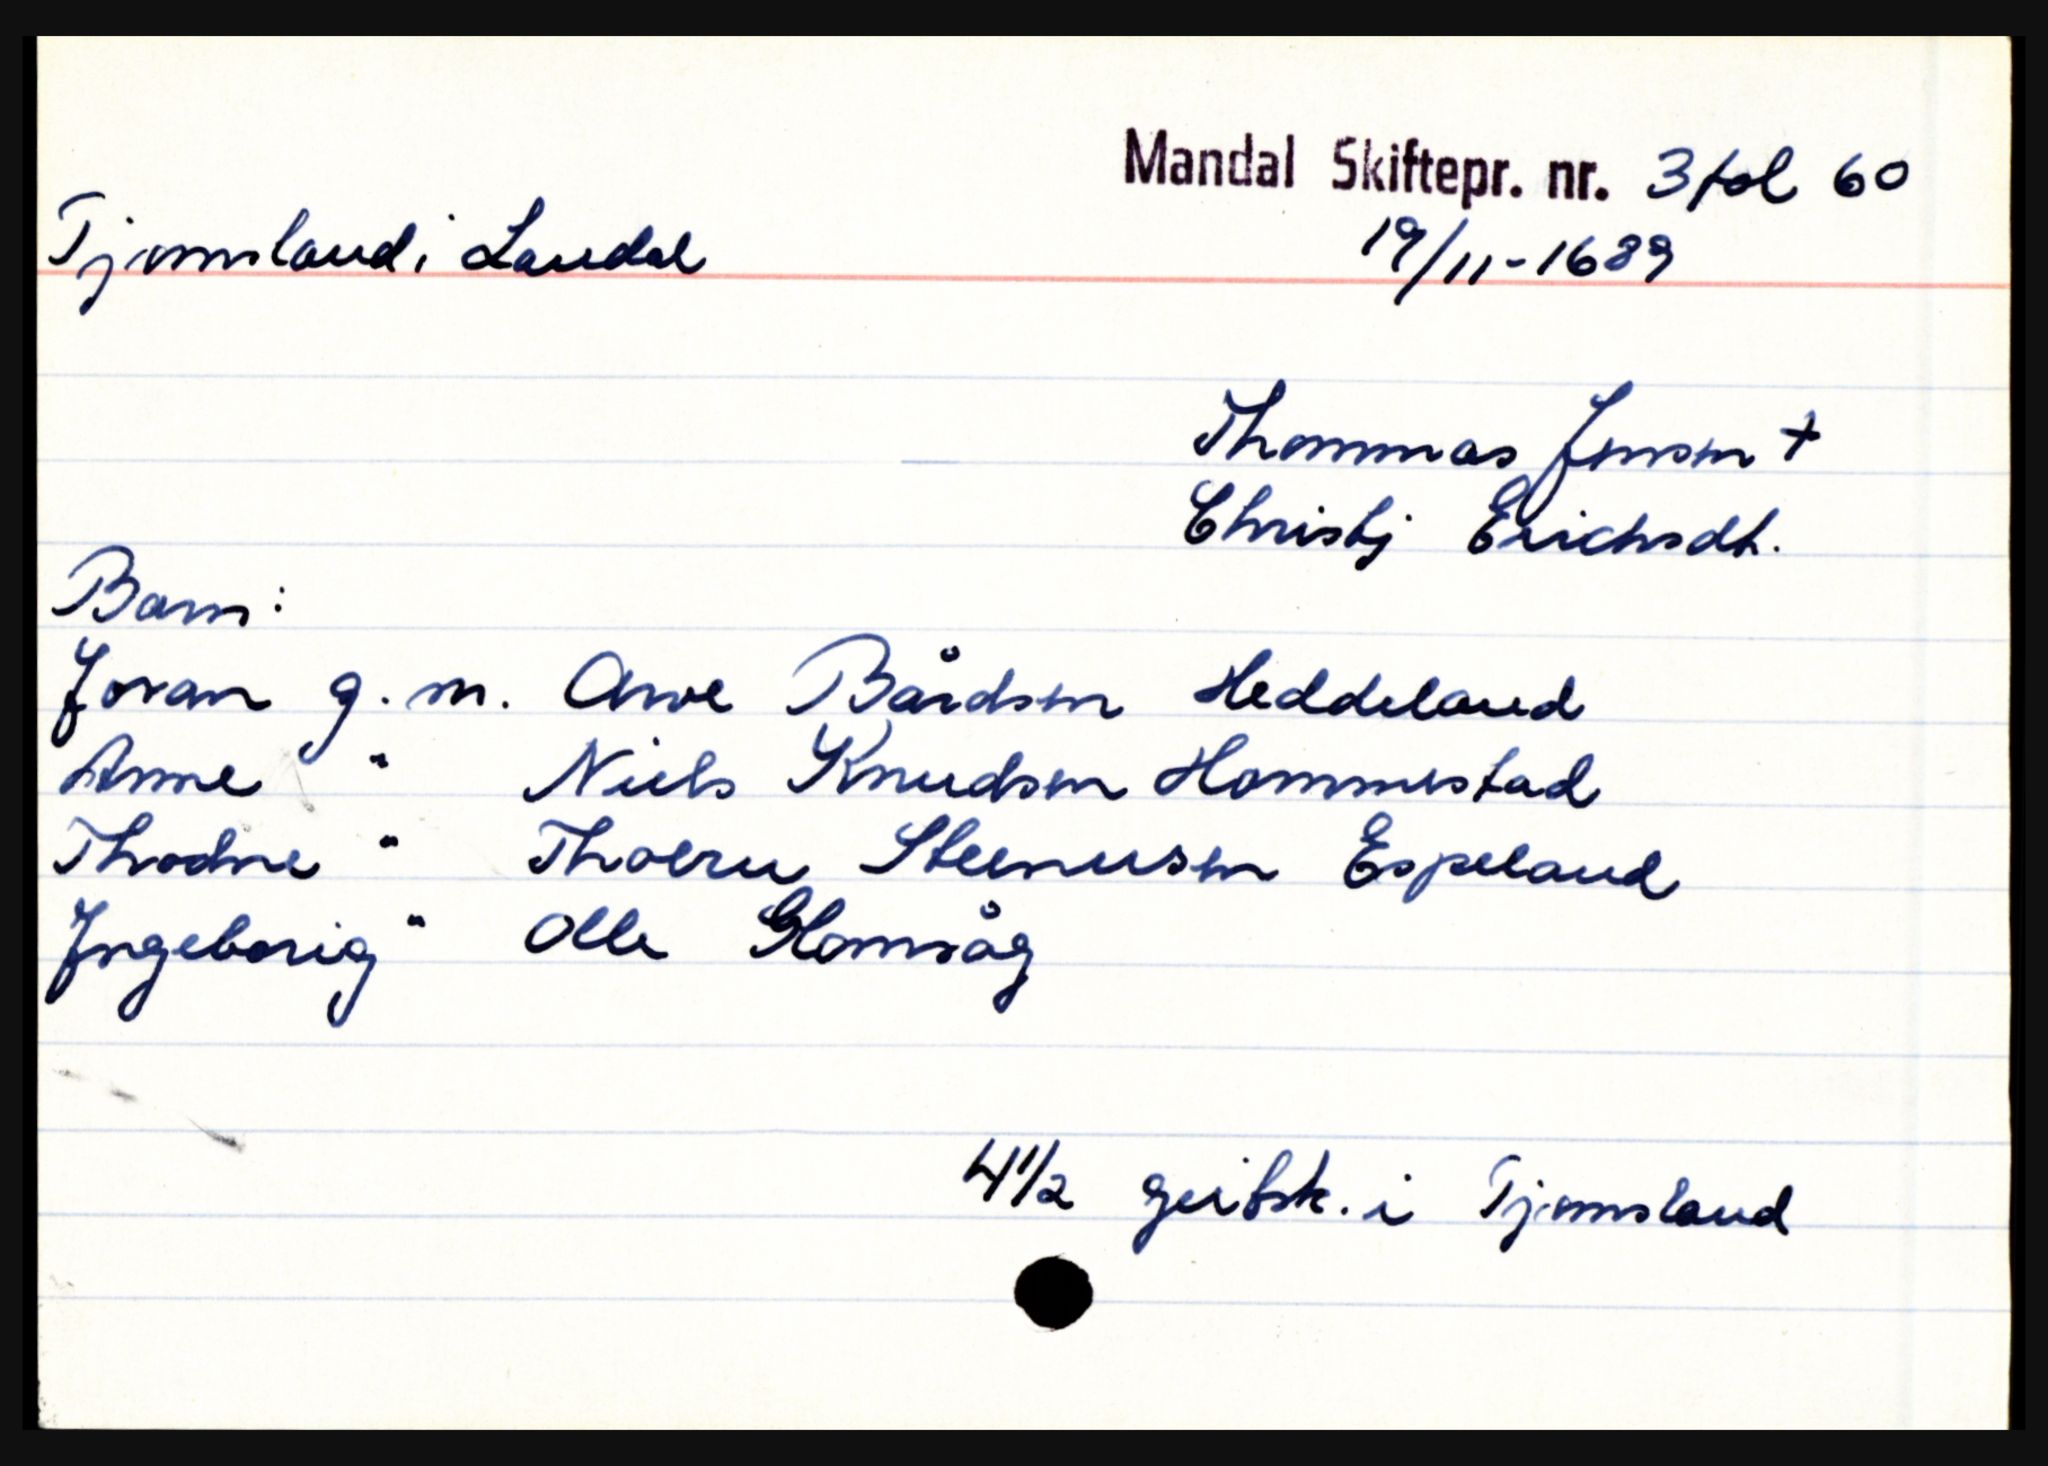 Mandal Skiftepr. nr. 3 fol 60
Tjomsland i Laudal 19/11-1689
Thommas Jensen +
Christj Erichsdt.
Barn:
Joran g. m. Awe Bårdsen Heddeland
Anne " Niels Knudsen Hommestad
Throdne " Thoeru Steenusen Espeland
Ingeborig " Olle Homsåg
4 1/2 geitsk. i Tjomsland